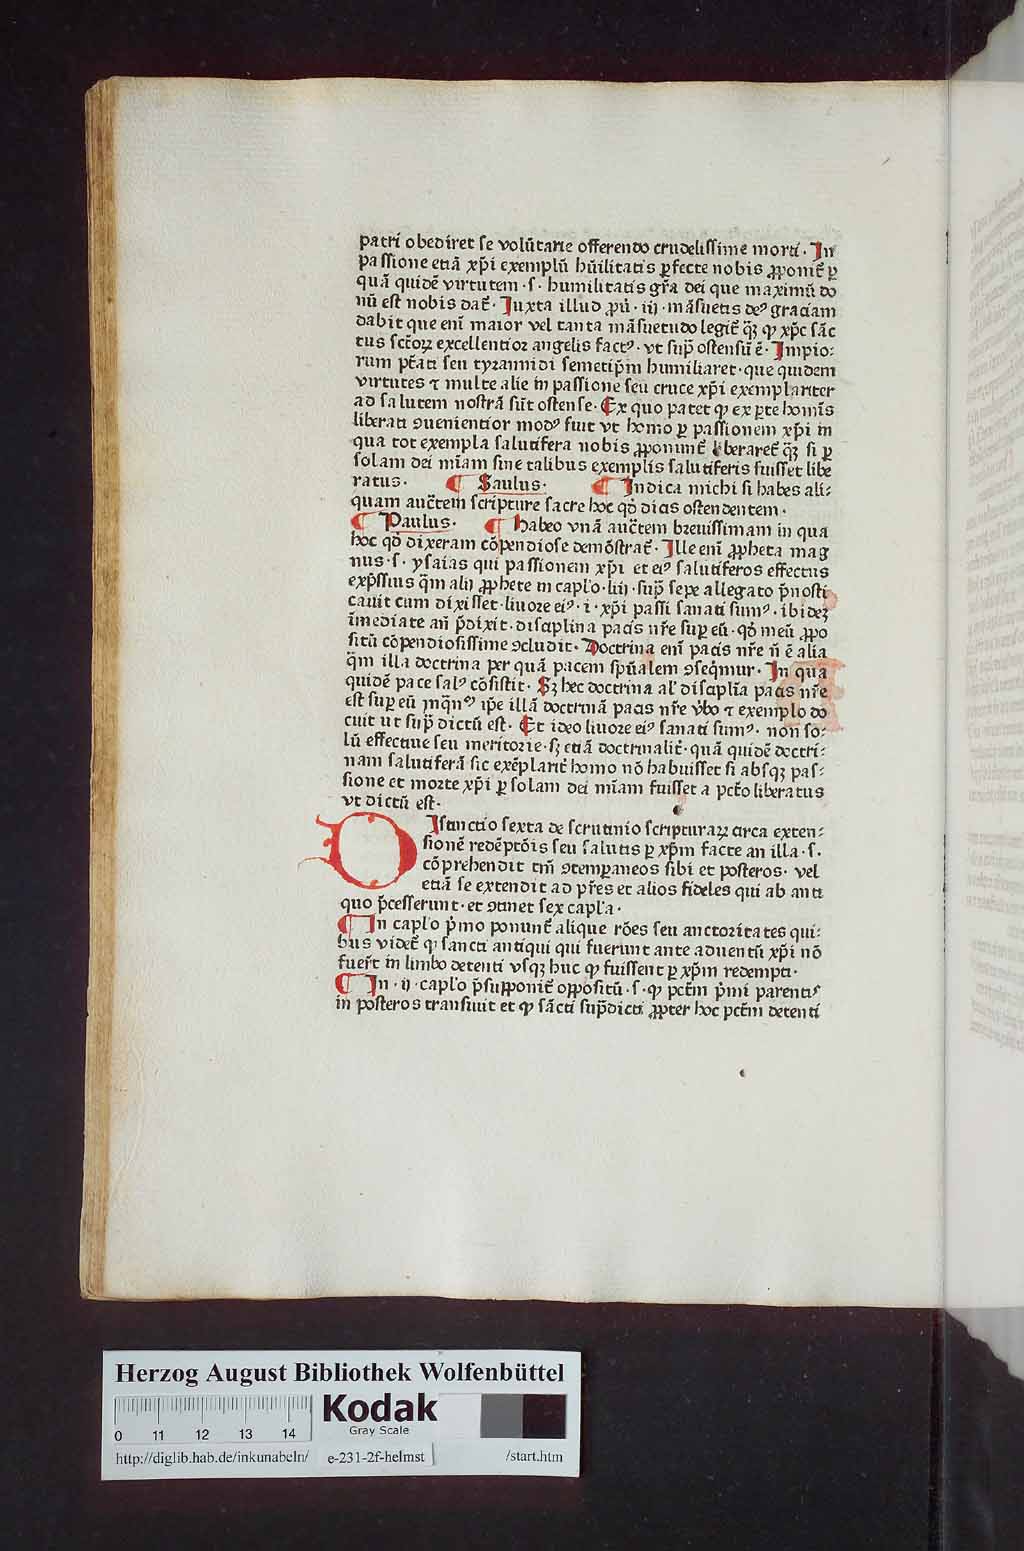 patri obediret se volūtarie offerendo crudelissime morti · In
passione etiā xp̄i exemplū hūilitatis ꝑfecte nobis ꝓponit᷑ ꝑ
quā quidē virtutem · s · humilitatis gr̄a dei que maximū do
nū est nobis dat᷑ · Juxta illud ꝓu᷑ · iij · māsuetis deꝰ graciam
dabit que eni᷑ maior vel tanta māsuetudo legit᷑ qȝ ꝙ xp̄c sāc
tus sctōꝝ excellentior angelis factꝰ · vt sup̄ ostensū ē · Impio⸗
rum pt̄ati seu tyrannidi semetip̄m humiliaret · que quidem
virtutes ⁊ multe alie in passione seu cruce xp̄i exemplariter
ad salutem nostrā sūt ostense · Ex quo patet ꝙ ex ꝑte homīs
liberati ꝯuenientior modꝰ fuit vt homo ꝑ passionem xp̄i in
qua tot exempla salutifera nobis ꝓponunt᷑ liberaret᷑ qȝ si ꝑ
solam dei mi᷑am sine talibus exemplis salutiferis fuisset libe
ratus · ¶ Saulus · ¶ Indica michi si habes ali⸗
quam auct̄em scripture sacre hoc qd̓ dicis ostendentem ·
¶ Paulus · ¶ habeo vnā auct̄em breuissimam in qua
hoc qd̓ dixeram cōpendiose demōstrat᷑ · Ille eni᷑ ꝓpheta mag
nus · s · ysaias qui passionem xp̄i et eiꝰ salutiferos effectus
exp̄ssius q̄m alij ꝓphete in capl̓o · liij · sup̄ sepe allegato p̄nosti
cauit cum dixisset · liuore eiꝰ · i · xp̄i passi sanati sumꝰ · ibideȝ
īmediate an̄ p̄dixit · disciplina pacis nr̄e suꝑ eū · qd̓ meū ꝓpo
sitū cōpendiosissime ꝯcludit · Doctrina eni᷑ pacis nr̄e n̄ ē alia
q̄m illa doctrina per quā pacem spūalem ꝯseq̄mur · In qua
quidē pace salꝰ cōsistit · Sȝ hec doctrina al̓ discipli᷑a pacis nr̄e
est suꝑ eū inq̄nꝫ ip̄e illā doctrinā pacis nr̄e v̓bo ⁊ exemplo do
cuit ut sup̄ dictū est · Et ideo liuore eiꝰ sanati sumꝰ · non so⸗
lū effectiue seu meritorie · sȝ etiā doctrinalit᷑ · quā quidē doctri⸗
nam salutiferā sic exēplarit᷑ homo nō habuisset si absqȝ pas⸗
sione et morte xp̄i ꝑ solam dei mi᷑am fuisset a pctō liberatus
vt dictū est ·
DIstinctio sexta de scrutinio scripturaꝝ circa exten⸗
sionē redēptōis seu salutis ꝑ xp̄m facte an illa · s ·
cōprehendit tm̄ ꝯtemꝑaneos sibi et posteros · vel
etiā se extendit ad pr̄es et alios fideles qui ab anti
quo p̄cesserunt · et ꝯtinet sex capl̓a ·
¶ In capl̓o p̄mo ponunt᷑ alique rōes seu auctoritates qui⸗
bus videt᷑ ꝙ sancti antiqui qui fuerunt ante aduentū xp̄i nō
fuer̄t in limbo detenti vsqȝ huc ꝙ fuissent ꝑ xp̄m redempti ·
¶ In · ij · capl̓o p̄supponit᷑ oppositū · s · ꝙ pctm̄ p̄mi parentis
in posteros transiuit et ꝙ sācti sup̄dicti ꝓpter hoc pctm̄ detenti
Herzog August Bibliothek Wolfenbüttel
Kodak
Gray Scale
0 11 12 13 14
http://diglib.hab.de/inkunabeln/ e-231-2f-helmst /start.htm